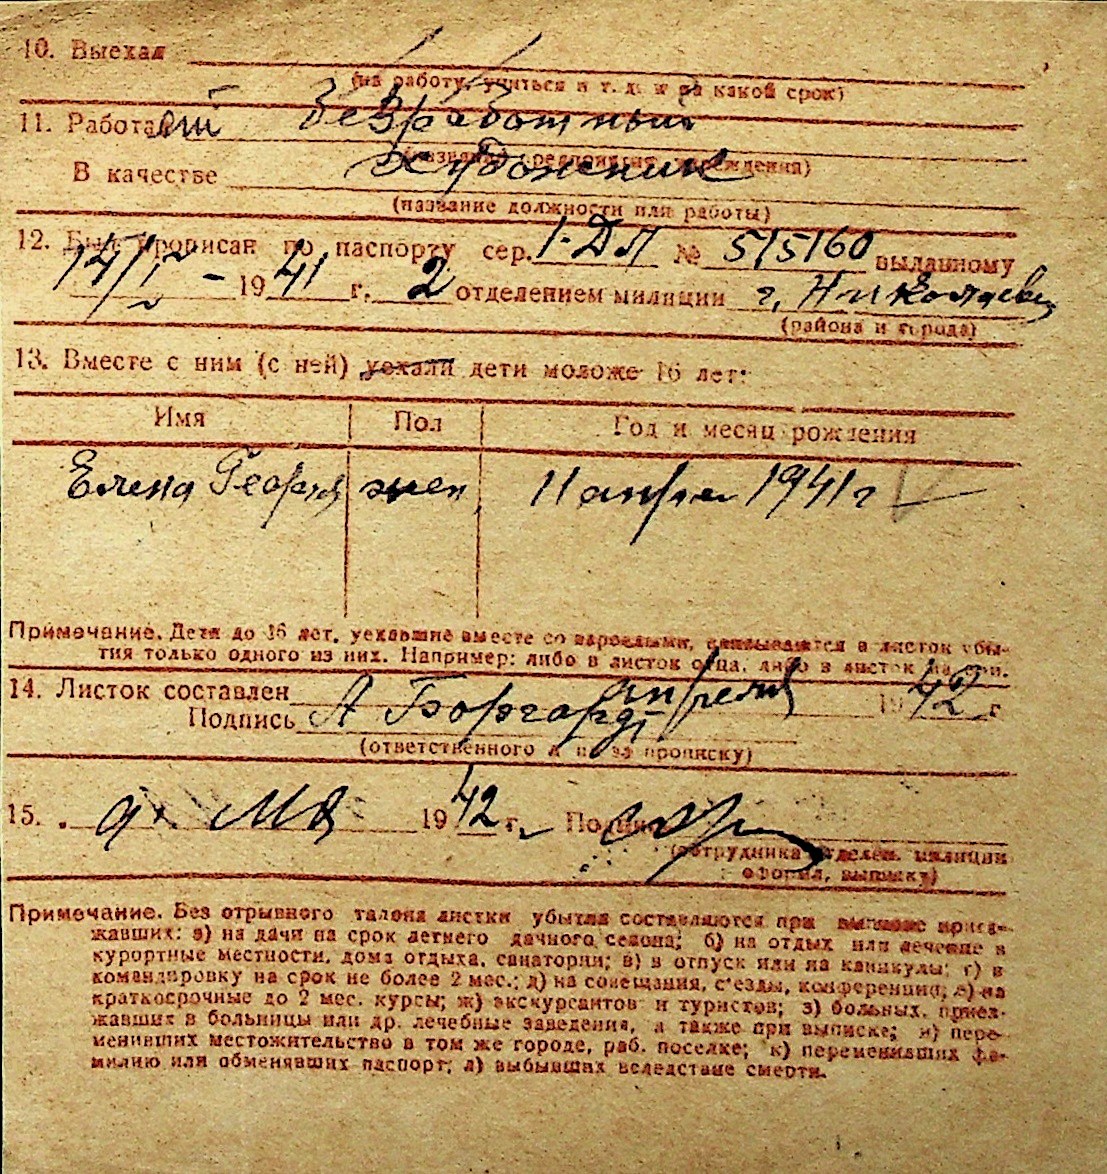 10. Выехал
(на работу, учиться и т. д. и на какой срок)
11. Работает Безработный
(название предприятия, учреждения)
В качестве художник
(название должности или работы)
12. Был прописан по паспорту сер. 1-ДЛ № 515160 выданному
14/V - 1941 г. 2 отделением милиции г. Николаев
(района и города)
13. Вместе с ним (с ней) уехали дети моложе 16 лет:
Имя Пол Год и месяц рождения
Елена Георг жен 11 апреля 1941 г
Примечание. Дети до 16 лет, уехавшие вместе со взрослыми, вписываются в листок убы-
тия только одного из них. Например: либо в листок отца, либо в листок матери.
14. Листок составлен апреля 1942 г
Подпись А Боргард
(ответственного за прописку)
15. 9. МЯ 1942 г. Подпись
(сотрудника отделен. милиции
оформл. выписку)
Примечание. Без отрывного талона листки убытия составляются при выписке приез-
жавших: а) на дачи на срок летнего дачного сезона; б) на отдых или лечение в
курортные местности, дома отдыха, санатории; в) в отпуск или на каникулы; г) в
командировку на срок не более 2 мес.; д) на совещания, съезды, конференции; е) на
краткосрочные до 2 мес. курсы; ж) экскурсантов и туристов; з) больных, приез-
жавших в больницы или др. лечебные заведения, а также при выписке; и) пере-
менивших местожительство в том же городе, раб. поселке; к) переменивших фа-
милию или обменявших паспорт; л) выбывших вследствие смерти.